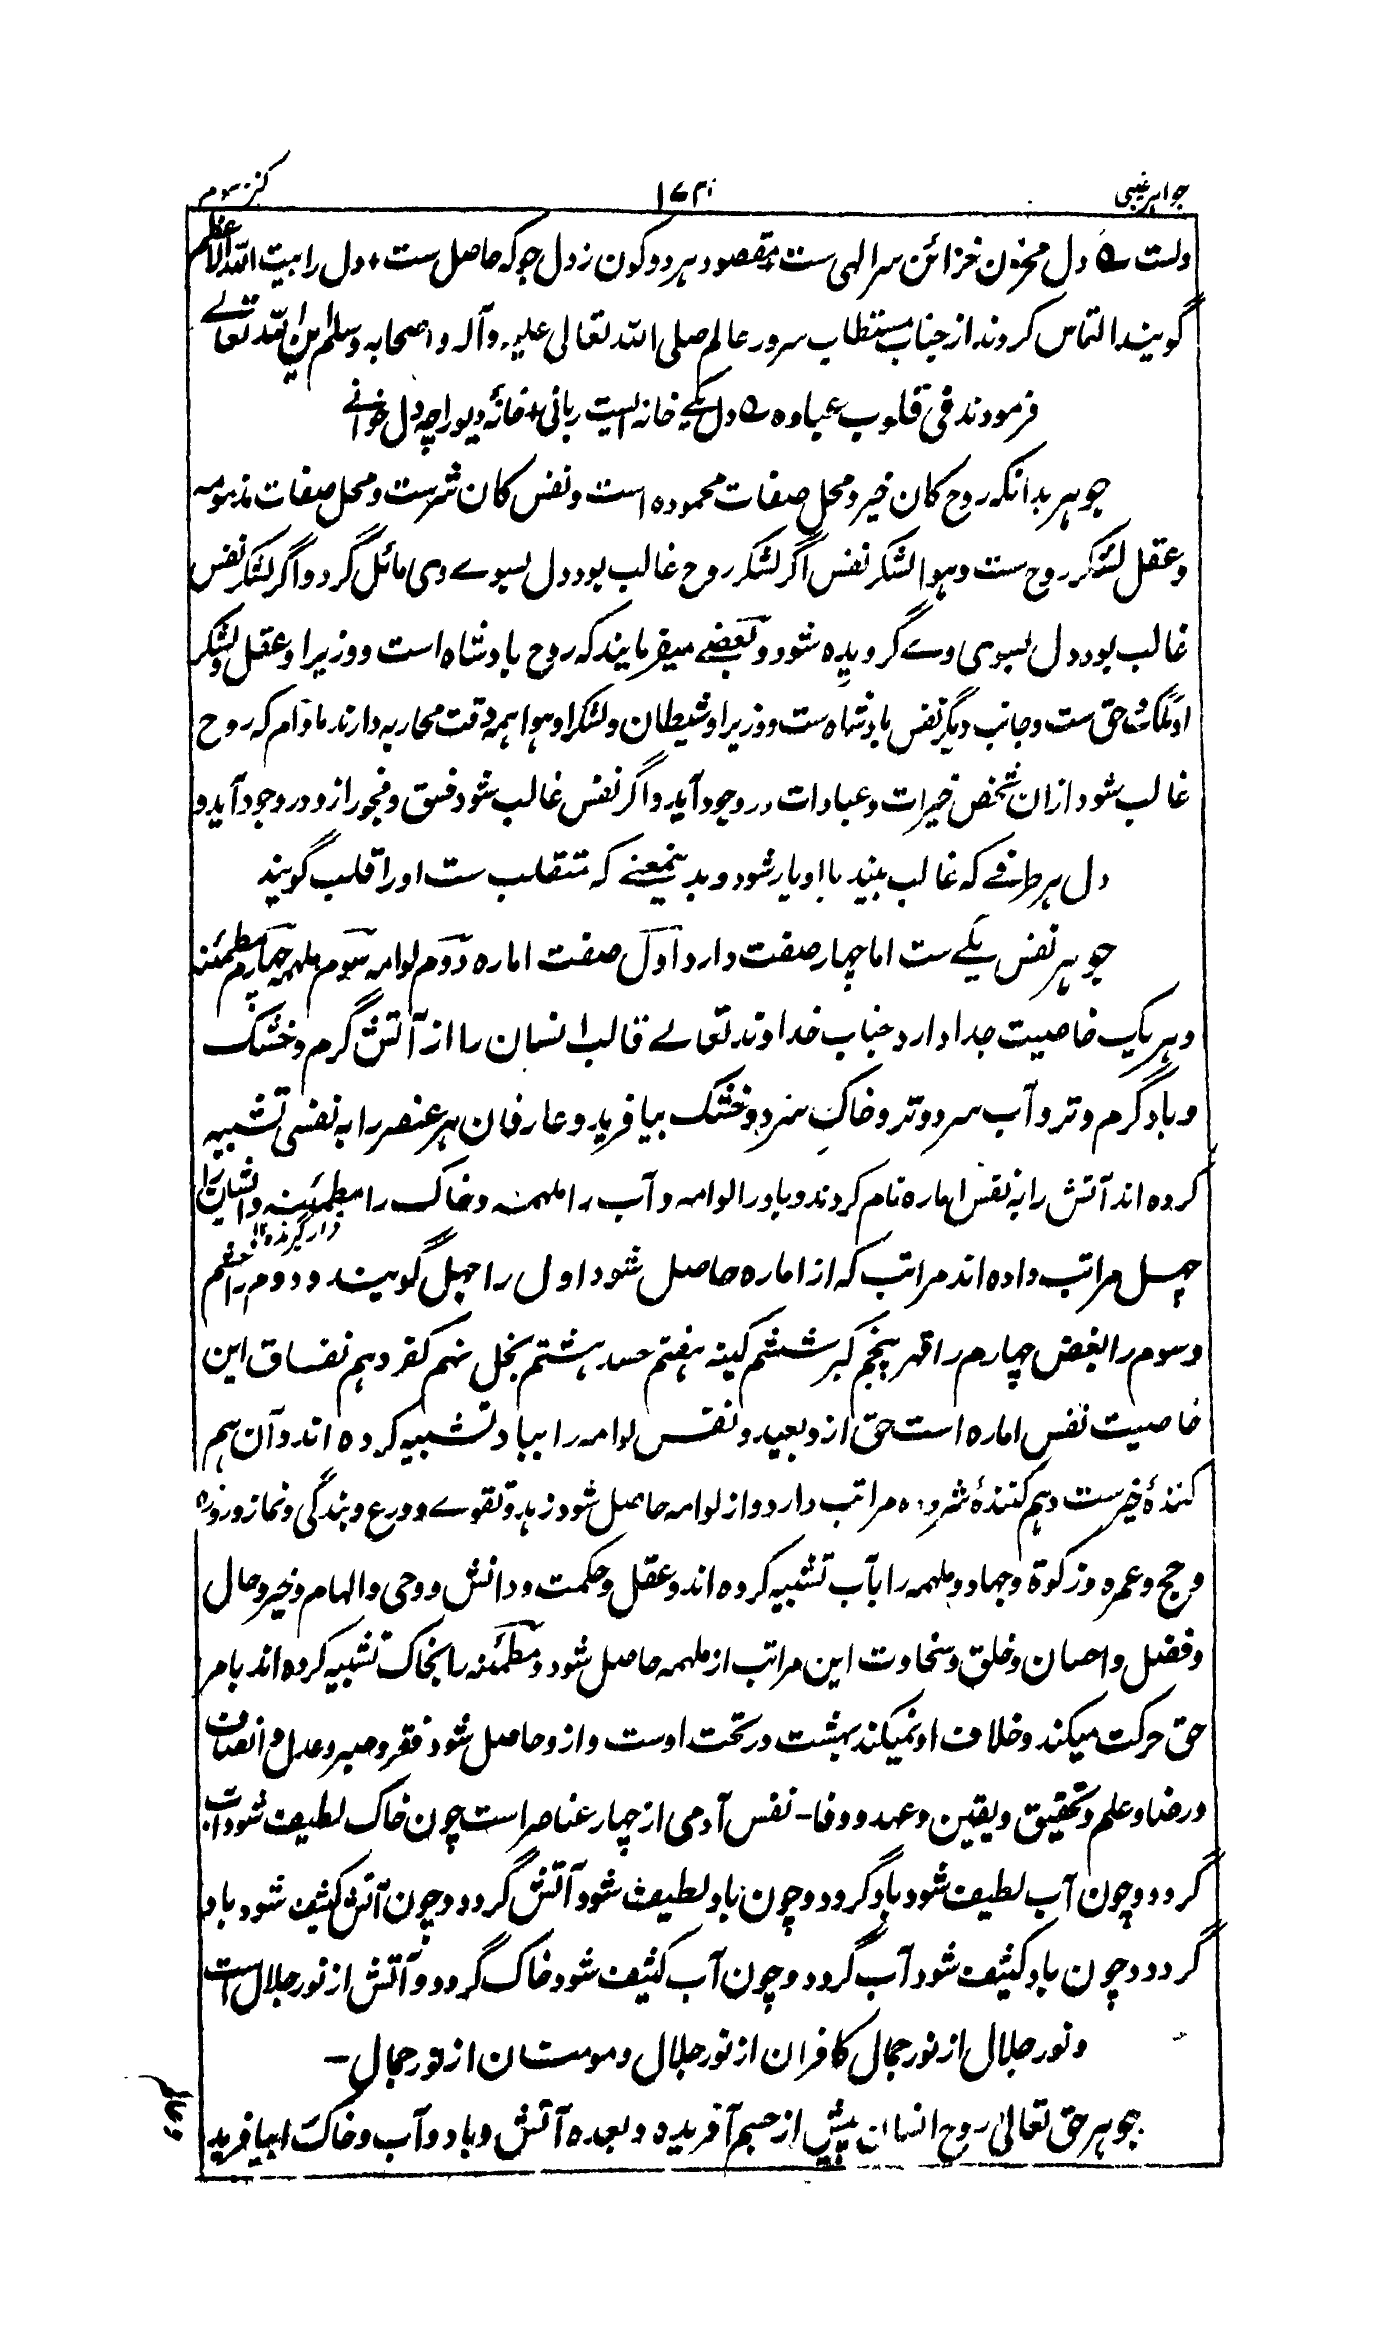 جواہر غیبی ۱۷۴ کنز سوم
دلست ؎ دل مخزن خزائن سر الٰہی ست + مقصود ہر دو کون ز دل جو کہ حاصل ست + دل را بیت اللہ الاعظم
گویند التماس کردند از جناب مستطاب سرور عالم صلی اللہ تعالی علیہ وآلہ واصحابہ وسلم این اللہ تعالے
فرمودند فی قلوب عبادہ ؎ دل یکے خانہ ایست ربانی + خانۂ دیو را چہ دل خوانے
جوہر بدانکہ روح کان خیر و محل صفات محمودہ است و نفس کان شرست و محل صفات مذمومہ
و عقل لشکر روح ست و ہوا لشکر نفس اگر لشکر روح غالب بود دل بسوے وی مائل گردد و اگر لشکر نفس
غالب بود دل بسوی وے گرویدہ شود و بعضے میفرمایند کہ روح بادشاہ است و وزیر او عقل و لشکر
او ملک حق ست و جانب دیگر نفس بادشاہ ست و وزیر او شیطان و لشکر او ہوا ہمہ وقت محاربہ دارند مادام کہ روح
غالب شود ازان شخص خیرات و عبادات در وجود آید و اگر نفس غالب شود فسق و فجور ازو در وجود آید و
دل ہر طرفے کہ غالب بیند با او یار شود و بدینمعنے کہ متقلب ست او را قلب گویند
جوہر نفس یکے ست اما چہار صفت دارد اول صفت امارہ دوم لوامہ سوم ملہمہ چہارم مطمئنہ
و ہر یک خاصیت جدا دارد جناب خداوند تعالے قالب انسان را از آتش گرم و خشک
و باد گرم و تر و آب سرد و تر و خاک سرد و خشک بیافرید و عارفان ہر عنصر را بہ نفسی تشبیہ
کردہ اند آتش را بہ نفس امارہ نام کردند و باد را لوامہ و آب را ملہمہ و خاک را مطمئنہ و ایشان را
قرار گیرندہ ۱۲
چہل مراتب دادہ اند مراتب کہ از امارہ حاصل شود اول را جہل گویند و دوم را خشم
و سوم را بغض چہارم را قہر پنجم کبر ششم کینہ ہفتم حسد ہشتم بخل نہم کفر دہم نفاق این
خاصیت نفس امارہ است حق ازو بعید و نفس لوامہ را بباد تشبیہ کردہ اند و آن ہم
کنندۂ خیرست و ہم کنندۂ شر و دہ مراتب دارد و از لوامہ حاصل شود زہد و تقوے و ورع و بندگی و نماز و روزہ
و حج و عمرہ و زکوۃ و جہاد و ملہمہ را بآب تشبیہ کردہ اند و عقل و حکمت و دانش و وحی و الہام و خیر و حال
و فضل و احسان و خلق و سخاوت این مراتب از ملہمہ حاصل شود و مطمئنہ را بخاک تشبیہ کردہ اند بامر
حق حرکت میکند و خلاف او نمیکند بہشت در تحت اوست و ازو حاصل شود فقر و صبر و عدل و انصاف
و رضا و علم و تحقیق و یقین و عہد و وفا - نفس آدمی از چہار عناصر است چون خاک لطیف شود آب
گردد و چون آب لطیف شود باد گردد و چون باد لطیف شود آتش گردد و چون آتش کثیف شود باد
گردد و چون باد کثیف شود آب گردد و چون آب کثیف شود خاک گردد و آتش از نور جلال است
و نور جلال از نور جمال کافران از نور جلال و مومنان از نور جمال -
جوہر حق تعالیٰ روح انسان پیش از جسم آفریدہ و بعدہ آتش و باد و آب و خاک را بیافرید